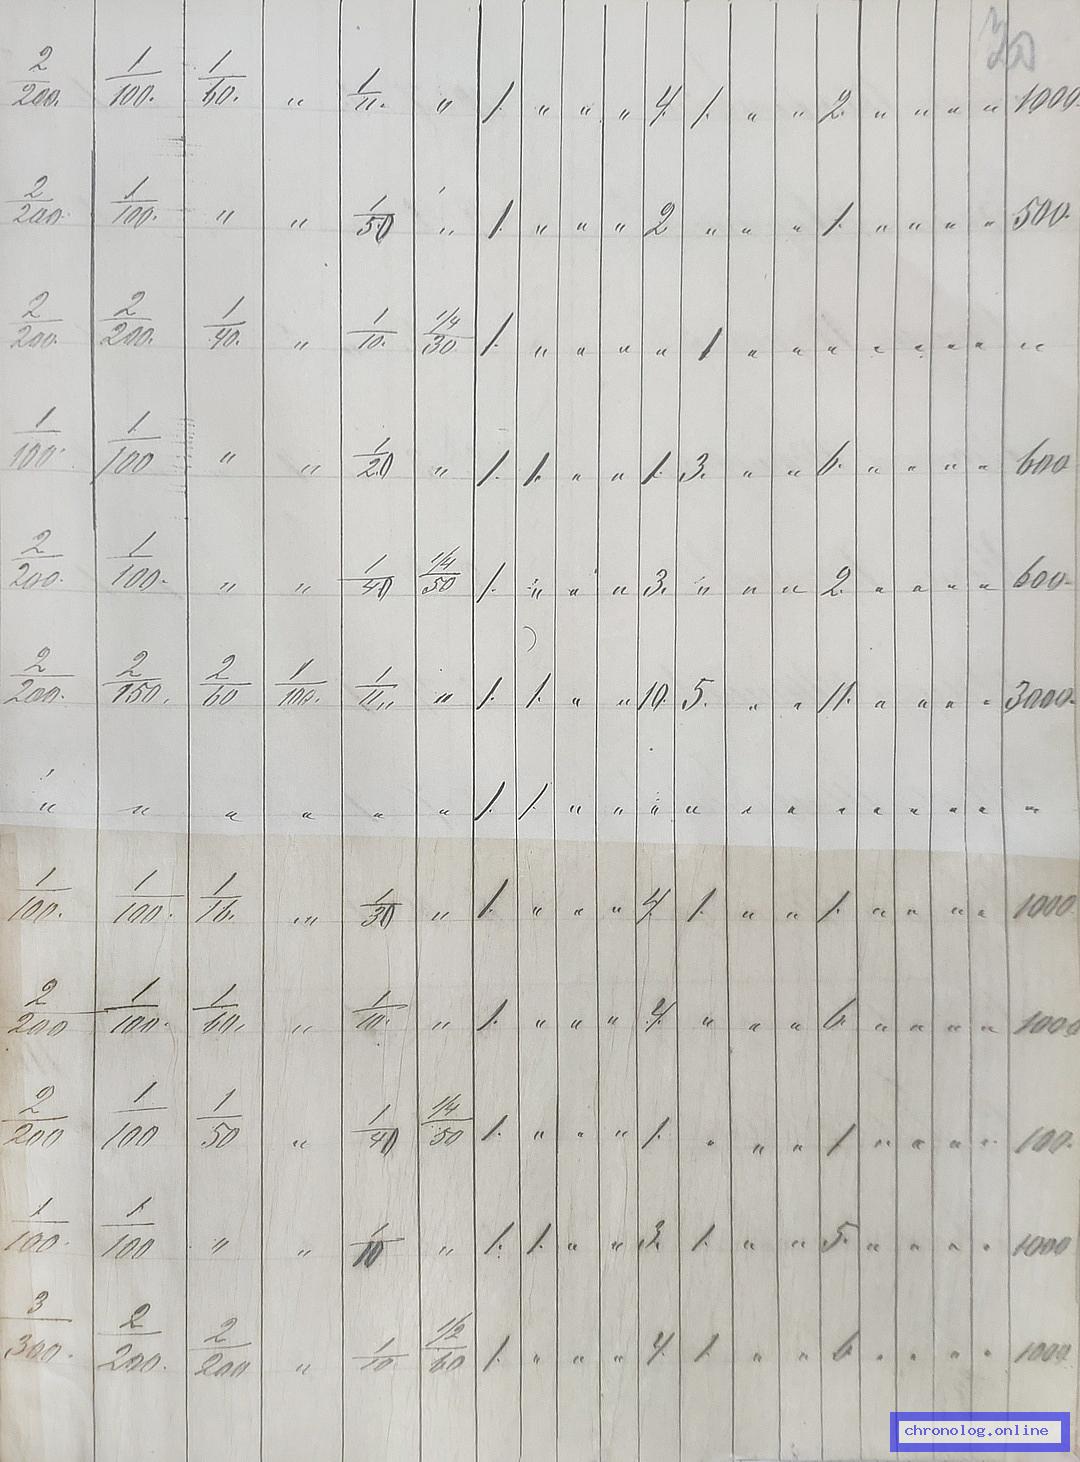 2/200. 1/100. 1/60. " 1/11. " 1. " " " 4. 1. " " 2. " " " " 1000.
2/200. 1/100. " " 1/50 " 1. " " " 2 " " " 1. " " " " 500.
2/200. 2/200. 1/40. " 1/10. 1/4/30 1. " " " " 1 " " " " " " " "
1/100. 1/100 " " 1/20 " 1. 1. " " 1. 3. " " 6. " " " " 600
2/200. 1/100. " " 1/40 1/4/50 1. " " " 3. " " " 2. " " " " 600.
2/200. 2/150. 2/60 1/100. 1/11 " 1. 1. " " 10. 5. " " 11. " " " " 3000.
" " " " " " 1. 1. " " " " " " " " " " " "
1/100. 1/100. 1/16. " 1/30 " 1. " " " 4. 1. " " 1. " " " " 1000
2/200 1/100. 1/60. " 1/10. " 1. " " " 4. " " " 6. " " " " 1000
2/200 1/100 1/50 " 1/40 1/4/50 1. " " " 1. " " " 1 " " " " 100.
1/100. 1/100 " " 1/10 " 1. 1. " " 3. 1. " " 5. " " " " 1000
3/300. 2/200. 2/200 " 1/10 1/2/60 1. " " " 4. 1. " " 6. " " " " 1000
chronolog.online